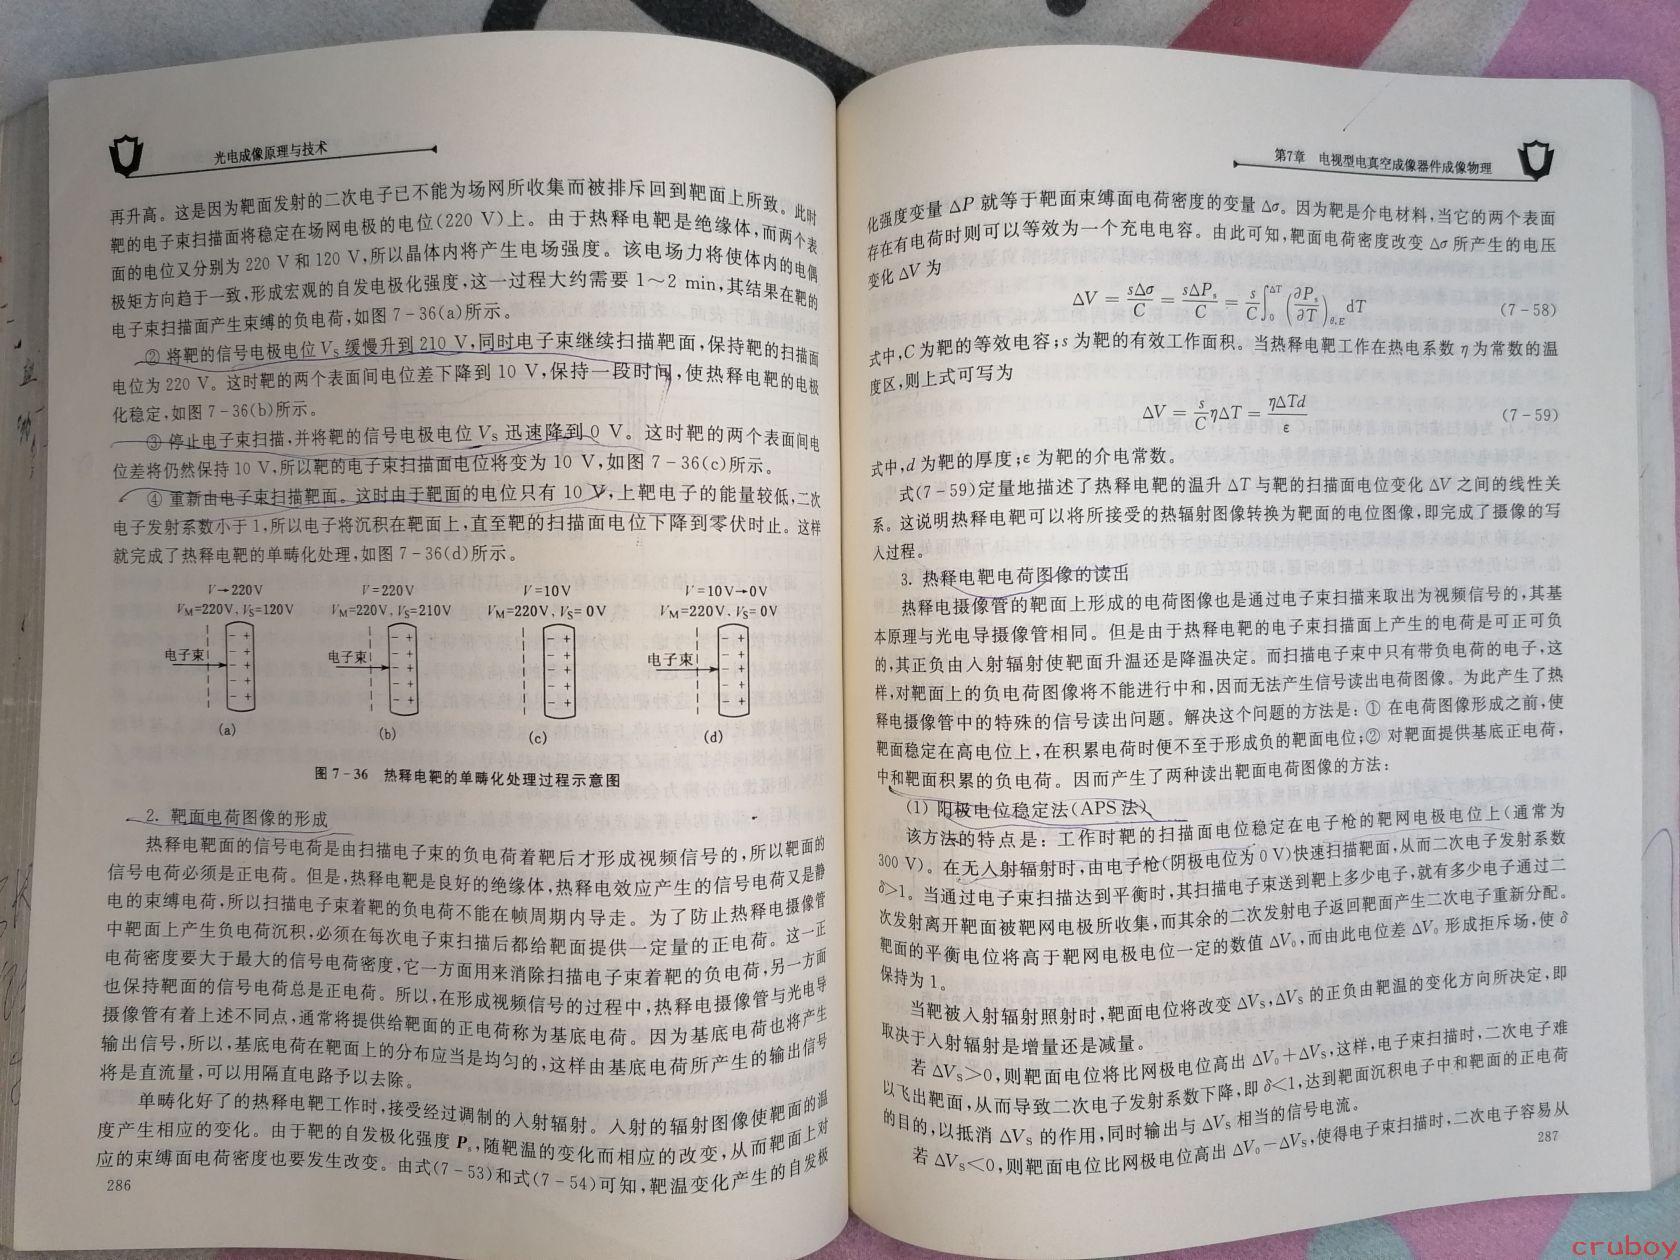 光电成像原理与技术
再升高。这是因为靶面发射的二次电子已不能为场网所收集而被排斥回到靶面上所致。此时
靶的电子束扫描面将稳定在场网电极的电位(220 V)上。由于热释电靶是绝缘体,而两个表
面的电位又分别为 220 V 和 120 V,所以晶体内将产生电场强度。该电场力将使体内的电偶
极矩方向趋于一致,形成宏观的自发电极化强度,这一过程大约需要 1～2 min,其结果在靶的
电子束扫描面产生束缚的负电荷,如图 7-36(a)所示。
② 将靶的信号电极电位 VS 缓慢升到 210 V,同时电子束继续扫描靶面,保持靶的扫描面
电位为 220 V。这时靶的两个表面间电位差下降到 10 V,保持一段时间,使热释电靶的电极
化稳定,如图 7-36(b)所示。
③ 停止电子束扫描,并将靶的信号电极电位 VS 迅速降到 0 V。这时靶的两个表面间电
位差将仍然保持 10 V,所以靶的电子束扫描面电位将变为 10 V,如图 7-36(c)所示。
④ 重新由电子束扫描靶面。这时由于靶面的电位只有 10 V,上靶电子的能量较低,二次
电子发射系数小于 1,所以电子将沉积在靶面上,直至靶的扫描面电位下降到零伏时止。这样
就完成了热释电靶的单畴化处理,如图 7-36(d)所示。
V→220V V=220V V=10V V=10V→0V
VM=220V, VS=120V VM=220V, VS=210V VM=220V, VS=0V VM=220V, VS=0V
电子束 电子束 电子束
(a) (b) (c) (d)
图 7-36 热释电靶的单畴化处理过程示意图
2. 靶面电荷图像的形成
热释电靶面的信号电荷是由扫描电子束的负电荷着靶后才形成视频信号的,所以靶面的
信号电荷必须是正电荷。但是,热释电靶是良好的绝缘体,热释电效应产生的信号电荷又是静
电的束缚电荷,所以扫描电子束着靶的负电荷不能在帧周期内导走。为了防止热释电摄像管
中靶面上产生负电荷沉积,必须在每次电子束扫描后都给靶面提供一定量的正电荷。这一正
电荷密度要大于最大的信号电荷密度,它一方面用来消除扫描电子束着靶的负电荷,另一方面
也保持靶面的信号电荷总是正电荷。所以,在形成视频信号的过程中,热释电摄像管与光电导
摄像管有着上述不同点,通常将提供给靶面的正电荷称为基底电荷。因为基底电荷也将产生
输出信号,所以,基底电荷在靶面上的分布应当是均匀的,这样由基底电荷所产生的输出信号
将是直流量,可以用隔直电路予以去除。
单畴化好了的热释电靶工作时,接受经过调制的入射辐射。入射的辐射图像使靶面的温
度产生相应的变化。由于靶的自发极化强度 Ps,随靶温的变化而相应的改变,从而靶面上对
应的束缚面电荷密度也要发生改变。由式(7-53)和式(7-54)可知,靶温变化产生的自发极
286
第7章 电视型电真空成像器件成像物理
化强度变量 ΔP 就等于靶面束缚面电荷密度的变量 Δσ。因为靶是介电材料,当它的两个表面
存在有电荷时则可以等效为一个充电电容。由此可知,靶面电荷密度改变 Δσ 所产生的电压
变化 ΔV 为
ΔV = sΔσ/C = sΔPs/C = s/C ∫0^ΔT (∂Ps/∂T)θ,E dT (7-58)
式中,C 为靶的等效电容;s 为靶的有效工作面积。当热释电靶工作在热电系数 η 为常数的温
度区,则上式可写为
ΔV = s/C ηΔT = ηΔTd/ε (7-59)
式中,d 为靶的厚度;ε 为靶的介电常数。
式(7-59)定量地描述了热释电靶的温升 ΔT 与靶的扫描面电位变化 ΔV 之间的线性关
系。这说明热释电靶可以将所接受的热辐射图像转换为靶面的电位图像,即完成了摄像的写
入过程。
3. 热释电靶电荷图像的读出
热释电摄像管的靶面上形成的电荷图像也是通过电子束扫描来取出为视频信号的,其基
本原理与光电导摄像管相同。但是由于热释电靶的电子束扫描面上产生的电荷是可正可负
的,其正负由入射辐射使靶面升温还是降温决定。而扫描电子束中只有带负电荷的电子,这
样,对靶面上的负电荷图像将不能进行中和,因而无法产生信号读出电荷图像。为此产生了热
释电摄像管中的特殊的信号读出问题。解决这个问题的方法是:① 在电荷图像形成之前,使
靶面稳定在高电位上,在积累电荷时便不至于形成负的靶面电位;② 对靶面提供基底正电荷,
中和靶面积累的负电荷。因而产生了两种读出靶面电荷图像的方法:
(1) 阳极电位稳定法(APS 法)
该方法的特点是:工作时靶的扫描面电位稳定在电子枪的靶网电极电位上(通常为
300 V)。在无入射辐射时,由电子枪(阴极电位为 0 V)快速扫描靶面,从而二次电子发射系数
δ>1。当通过电子束扫描达到平衡时,其扫描电子束送到靶上多少电子,就有多少电子通过二
次发射离开靶面被靶网电极所收集,而其余的二次发射电子返回靶面产生二次电子重新分配。
靶面的平衡电位将高于靶网电极电位一定的数值 ΔV0,而由此电位差 ΔV0 形成拒斥场,使 δ
保持为 1。
当靶被入射辐射照射时,靶面电位将改变 ΔVS,ΔVS 的正负由靶温的变化方向所决定,即
取决于入射辐射是增量还是减量。
若 ΔVS>0,则靶面电位将比网极电位高出 ΔV0+ΔVS,这样,电子束扫描时,二次电子难
以飞出靶面,从而导致二次电子发射系数下降,即 δ<1,达到靶面沉积电子中和靶面的正电荷
的目的,以抵消 ΔVS 的作用,同时输出与 ΔVS 相当的信号电流。
若 ΔVS<0,则靶面电位比网极电位高出 ΔV0-ΔVS,使得电子束扫描时,二次电子容易从
287
cruboy